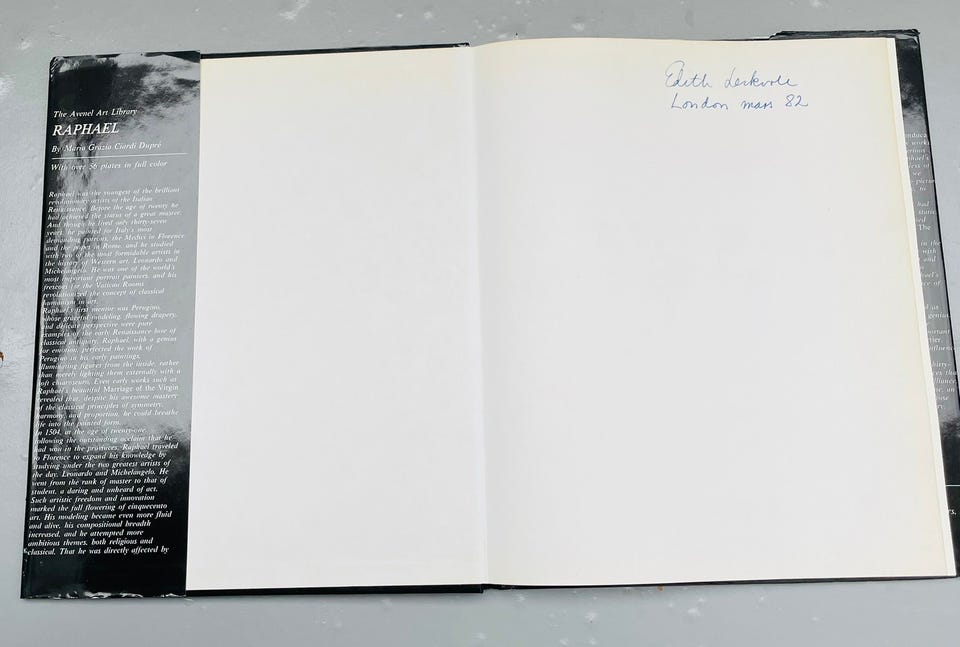 The Avenel Art Library
RAPHAEL
By Maria Grazia Ciardi Dupré
With over 56 plates in full color
Raphael was the youngest of the brilliant
revolutionary artists of the Italian
Renaissance. Before the age of twenty he
had achieved the status of a great master.
And though he lived only thirty-seven
years, he painted for Italy's most
demanding patrons, the Medici in Florence
and the popes in Rome, and he studied
with two of the most formidable artists in
the history of Western art, Leonardo and
Michelangelo. He was one of the world's
most important portrait painters, and his
frescoes for the Vatican Rooms
revolutionized the concept of classical
humanism in art.
Raphael's first mentor was Perugino,
whose graceful modeling, flowing drapery,
and delicate perspective were pure
examples of the early Renaissance love of
classical antiquity. Raphael, with a genius
for emotion, perfected the work of
Perugino in his early paintings,
illuminating figures from the inside, rather
than merely lighting them externally with a
soft chiaroscuro. Even early works such as
Raphael's beautiful Marriage of the Virgin
revealed that, despite his awesome mastery
of the classical principles of symmetry,
harmony, and proportion, he could breathe
life into the painted form.
In 1504, at the age of twenty-one,
following the outstanding acclaim that he
had won in the provinces, Raphael traveled
to Florence to expand his knowledge by
studying under the two greatest artists of
the day, Leonardo and Michelangelo. He
went from the rank of master to that of
student, a daring and unheard of act.
Such artistic freedom and innovation
marked the full flowering of cinquecento
art. His modeling became even more fluid
and alive, his compositional breadth
increased, and he attempted more
ambitious themes, both religious and
classical. That he was directly affected by
Edith
London mars 82